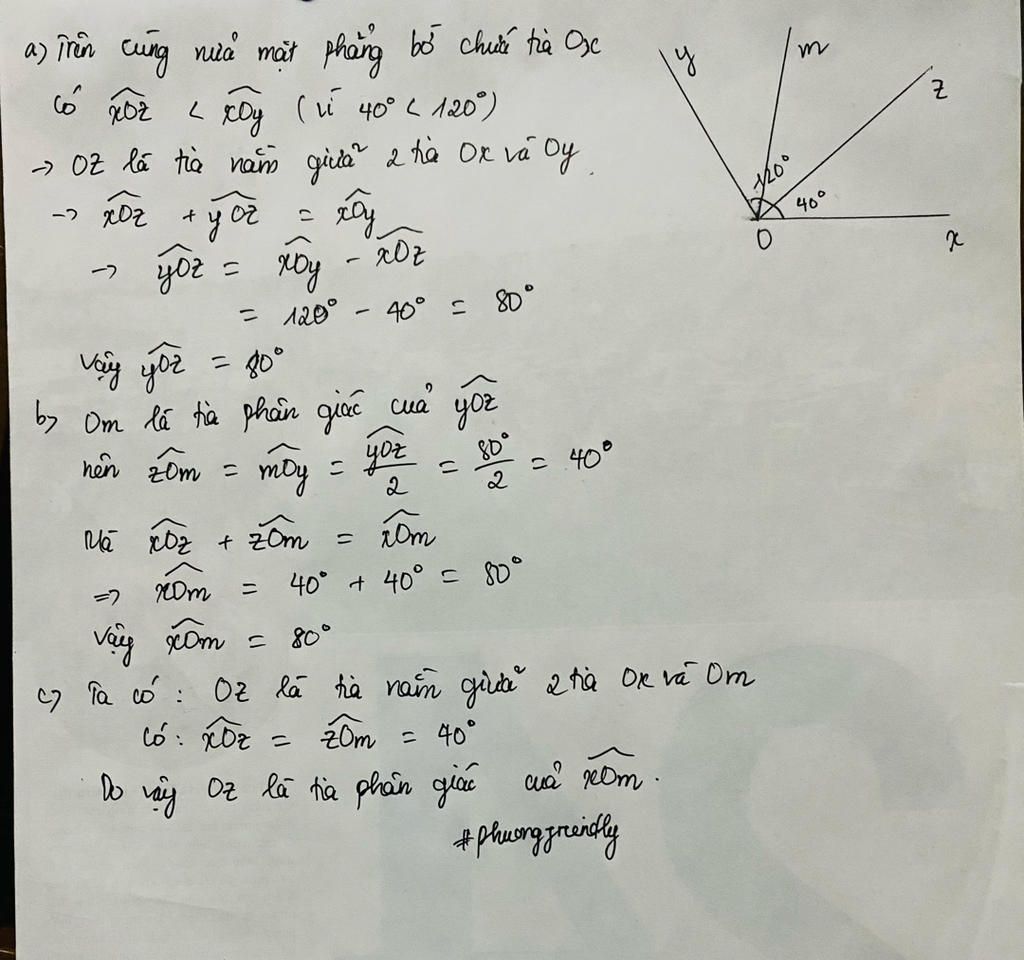 a) Trên cùng nửa mặt phẳng bờ chứa tia Ox
có x̂Oz < x̂Oy (vì 40° < 120°)
→ Oz là tia nằm giữa 2 tia Ox và Oy.
→ x̂Oz + ŷOz = x̂Oy
→ ŷOz = x̂Oy - x̂Oz
= 120° - 40° = 80°
Vậy ŷOz = 80°
b) Om là tia phân giác của ŷOz
nên ẑOm = m̂Oy = ŷOz/2 = 80°/2 = 40°
Mà x̂Oz + ẑOm = x̂Om
=> x̂Om = 40° + 40° = 80°
Vậy x̂Om = 80°
c) Ta có: Oz là tia nằm giữa 2 tia Ox và Om
Có: x̂Oz = ẑOm = 40°
Do vậy Oz là tia phân giác của x̂Om.
#phuongfriendly
y
m
z
120°
40°
O
x